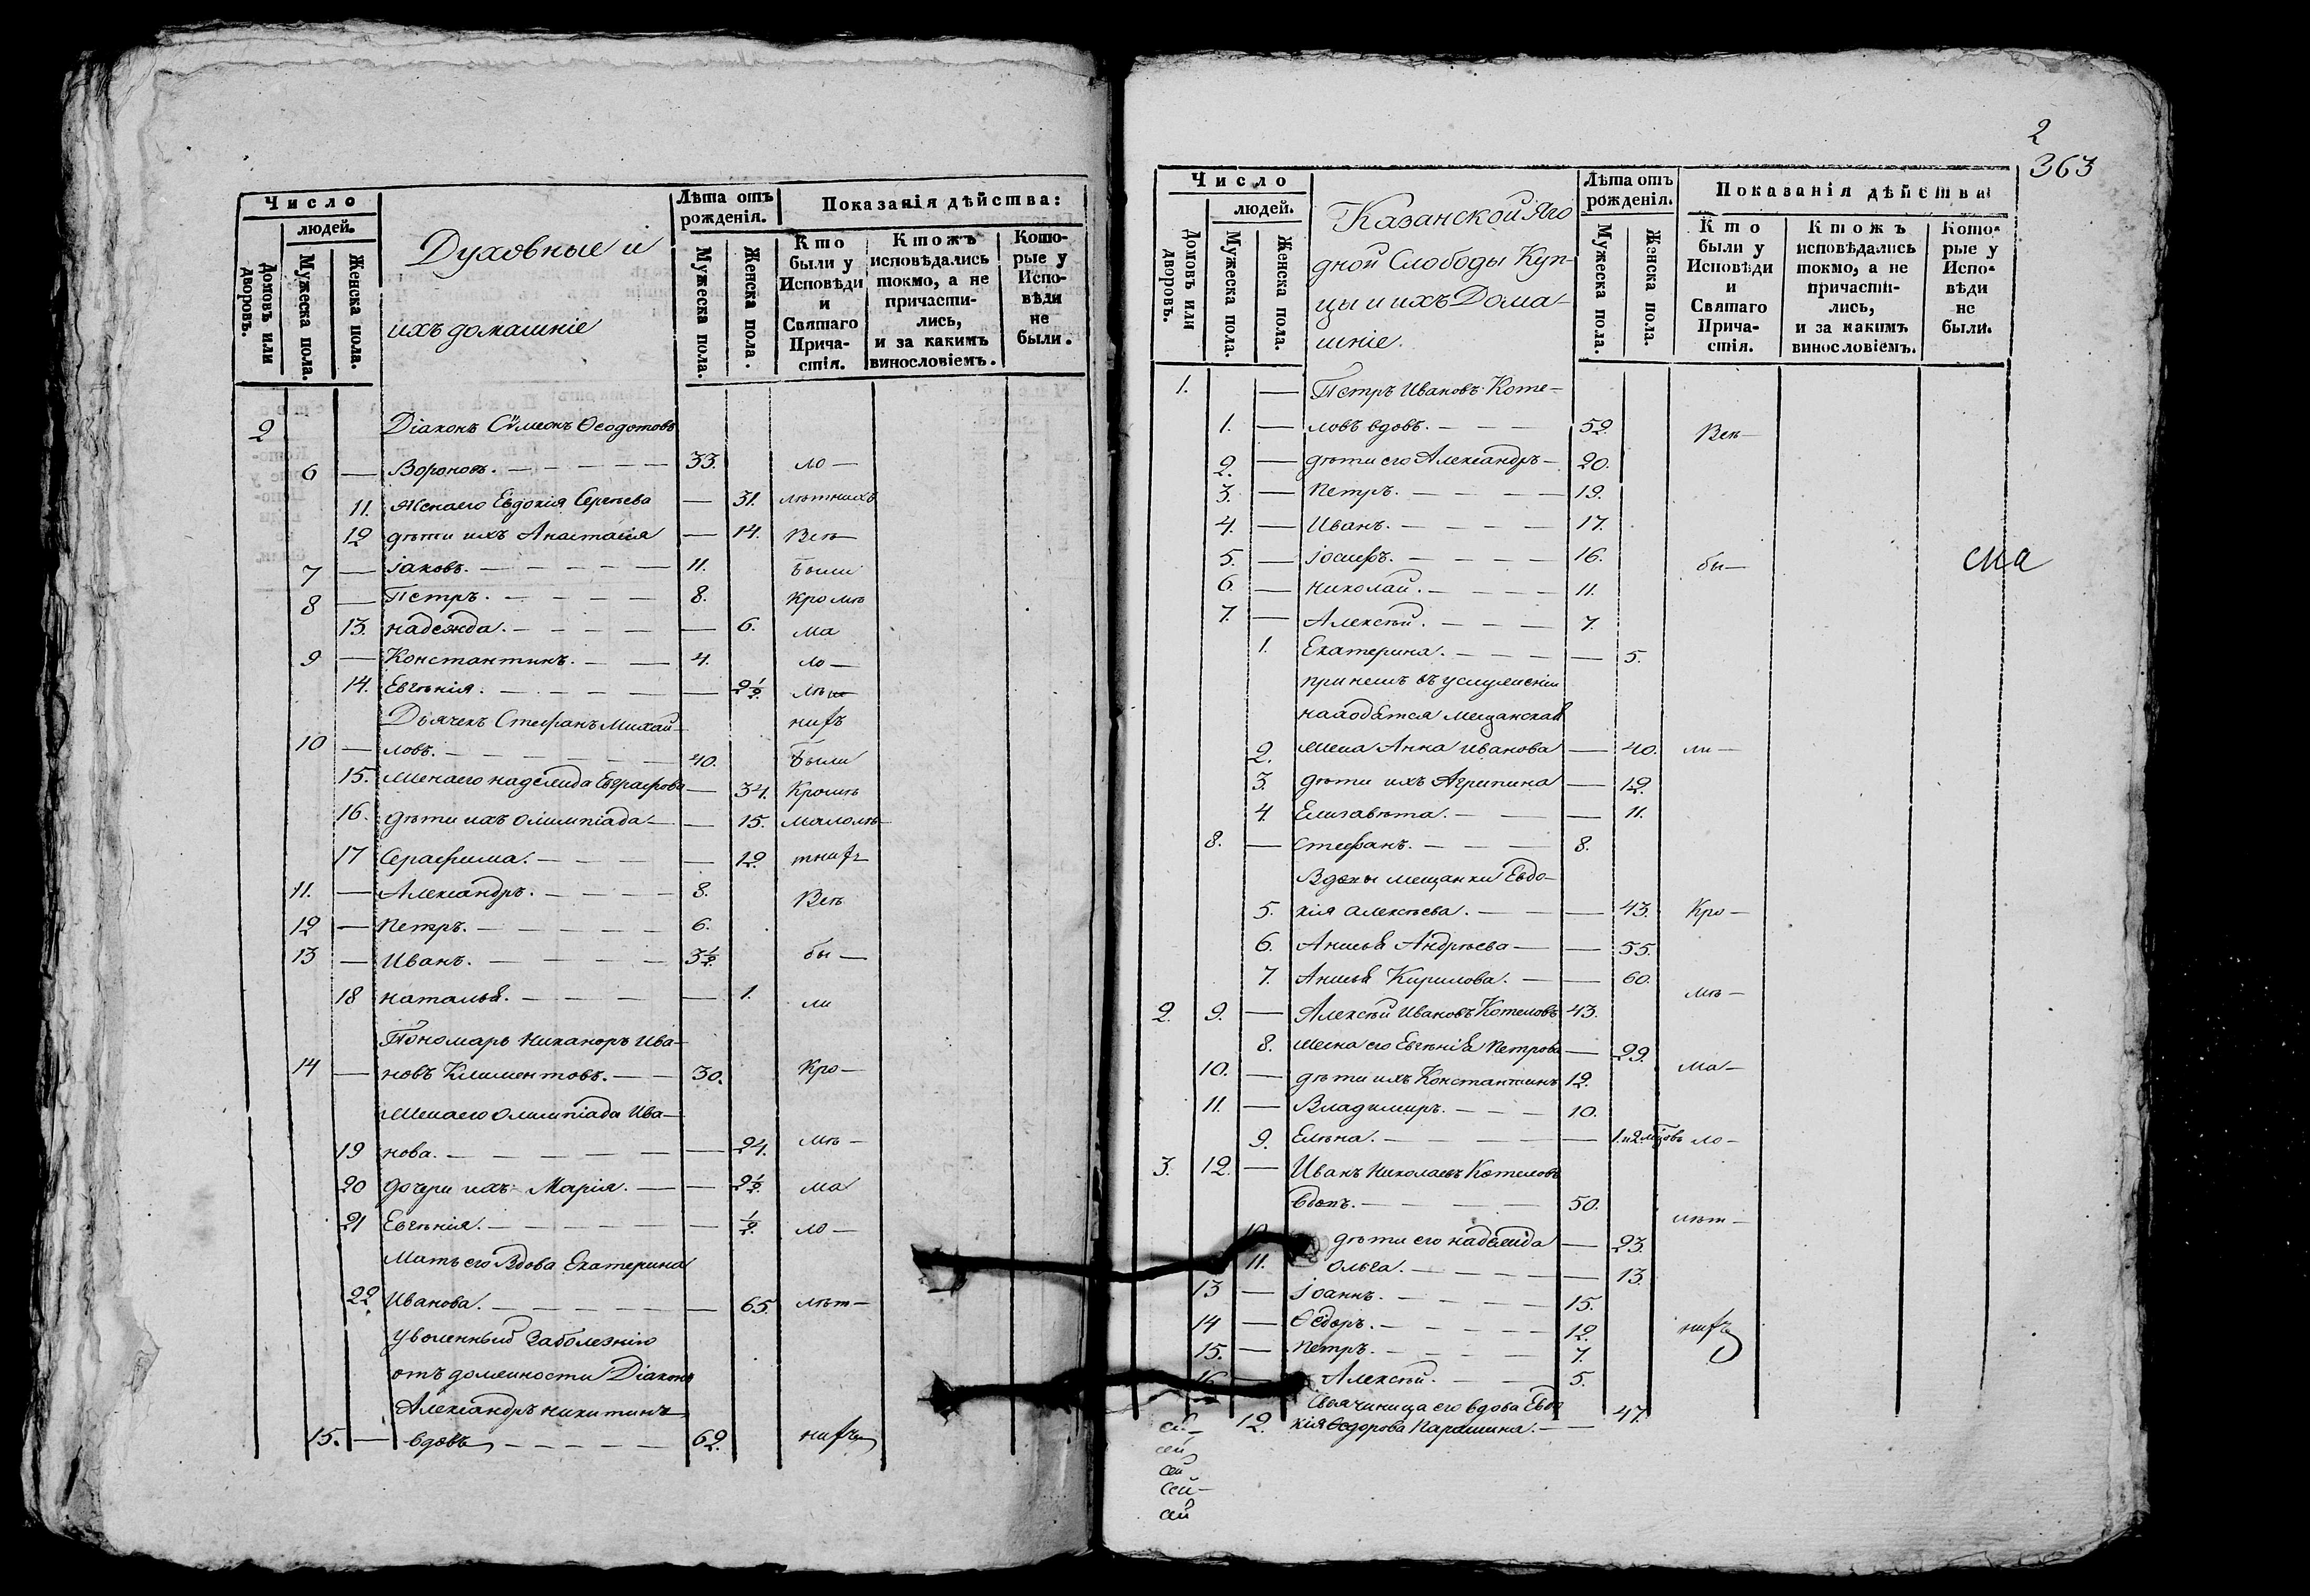 Число
людей.
Домовъ или дворовъ.
Мужеска пола.
Женска пола.
Духовные и
ихъ домашніе
Лѣта отъ рожденія.
Мужеска пола.
Женска пола.
Показанія дѣйства:
Кто были у Исповѣди и Святаго Причастія.
Ктожъ исповѣдались токмо, а не причастились, и за какимъ винословіемъ.
Которые у Исповѣди не были.
2 Діаконъ Сѵмеонъ Ѳеодотовъ
6 — Вороновъ. — 33. ло —
11. Жена его Евдокія Сергѣева — 31. лѣтнихъ
12 дѣти ихъ Анастасія — 14. Всѣ —
7 — Іаковъ. — 11. Были
8 — Петръ. — 8. Кромѣ
13. Надежда. — 6. ма
9 — Константинъ. — 4. ло —
14. Евгенія. — 2½. лѣт
Дьячекъ Стефанъ Михай- нихъ
10 — ловъ. — 40. Были
15. Жена его Надежда Евграфова — 34. Кромѣ
16. дѣти ихъ Олимпіада — 15. малолѣ-
17 Серафима. — 12. тнихъ
11. — Александръ. — 8. Всѣ
12 — Петръ. — 6.
13 — Иванъ. — 3½. бы —
18 Наталья. — 1. ли
Пономарь Никаноръ Ива-
14 — новъ Климентовъ. — 30. Кро —
Жена его Олимпіада Ива-
19 нова. — 24. мѣ —
20 дочери ихъ Марія. — 2½. ма
21 Евгенія. — ½. ло —
Мать его Вдова Екатерина
22. Иванова. — 65. лѣт —
Уволенный за болезнію
отъ должности Діаконъ
Александръ Никитинъ
15. — вдовъ — 62. нихъ
2
363
Число
людей.
Домовъ или дворовъ.
Мужеска пола.
Женска пола.
Казанской Яго
дной Слободы Куп-
цы и ихъ Дома-
шніе.
Лѣта отъ рожденія.
Мужеска пола.
Женска пола.
Показанія дѣйства
Кто были у Исповѣди и Святаго Причастія.
Ктожъ исповѣдались токмо, а не причастились, и за какимъ винословіемъ.
Которые у Исповѣди не были.
1. — Петръ Ивановъ Коте-
1. — ловъ вдовъ. — 52. Всѣ —
2. — дѣти его Александръ — 20.
3. — Петръ. — 19.
4. — Иванъ. — 17.
5. — Іосифъ. — 16. бы — сиа
6. — Николай. — 11.
7. — Алексѣй. — 7.
1. Екатерина. — 5.
при немъ въ услуженіи
находятся мещанская
2. жена Анна Иванова — 40. ли —
3. дѣти ихъ Агрипина — 12.
4. Елизавета. — 11.
8. — Стефанъ. — 8.
Вдовы мещанки Евдо-
5. кія Алексѣева. — 43. Кро —
6. Анисья Андреева — 55.
7. Анисья Кирилова. — 60. мѣ —
2. 9. — Алексѣй Ивановъ Котеловъ 43.
8. Жена его Евгенія Петрова — 29. ма —
10. — дѣти ихъ Константинъ 12.
11. — Владимиръ. — 10.
9. Елена. — ло —
3. 12. — Иванъ Николаевъ Котеловъ
вдовъ. — 50. лѣт —
10. дѣти его Надежда — 23.
11. Ольга. — 13.
13 — Іоаннъ. — 15.
14 — Ѳедоръ. — 12. нихъ
15. — Петръ. — 7.
16 — Алексѣй. — 5.
Своячиница его вдова Евдо
12. кія Ѳедорова Парашина. — 47.
сей
сей
сей